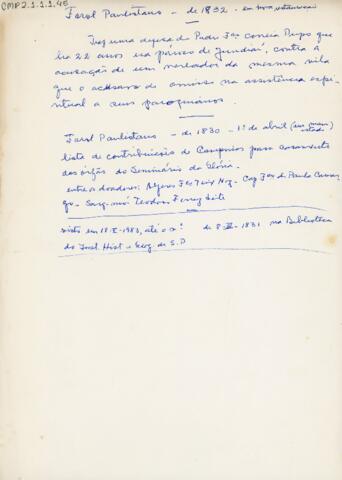 CMP2.1.1.45
Farol Paulistano - de 1832 - em
Traz uma defesa do Padre Fco Correia Pupo que
há 22 anos era pároco de Jundiaí, contra a
acusação de um vereador da mesma vila
que o acusava de omisso na assistência espi-
ritual a seus paroquianos.
Farol Paulistano - de 1830 - 1º de abril (em mau estado)
lista de contribuições de Campinas para
dos órfãos do Seminário da Glória.
entre os doadores: Alferes Fco Teix Nog - Cap Fco de Paula Camar-
go - Sarg-mór Teodoro Ferraz Leite
visto em 18-X-1983, até o nº de 8-III-1831 na Biblioteca
do Inst. Hist e Geog de S.P